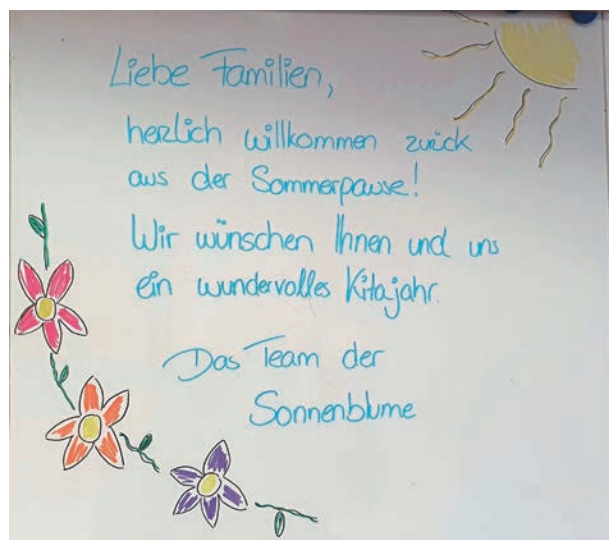 Liebe Familien,
herzlich willkommen zurück
aus der Sommerpause!
Wir wünschen Ihnen und uns
ein wundervolles Kitajahr.
Das Team der
Sonnenblume